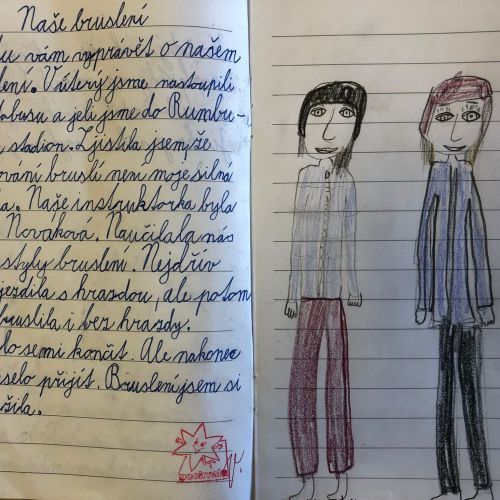 Naše bruslení
du vám vyprávět o našem
lení. V úterý jsme nastoupili
tobusu a jeli jsme do Rumbu-
a stadion. Zjistila jsem, že
ování bruslí není moje silná
a. Naše instruktorka byla
Nováková. Naučila nás
styly bruslení. Nejdřív
jezdila s hrazdou, ale potom
bruslila i bez hrazdy.
lo se mi končit. Ale nakonec
selo přijít. Bruslení jsem si
žila.